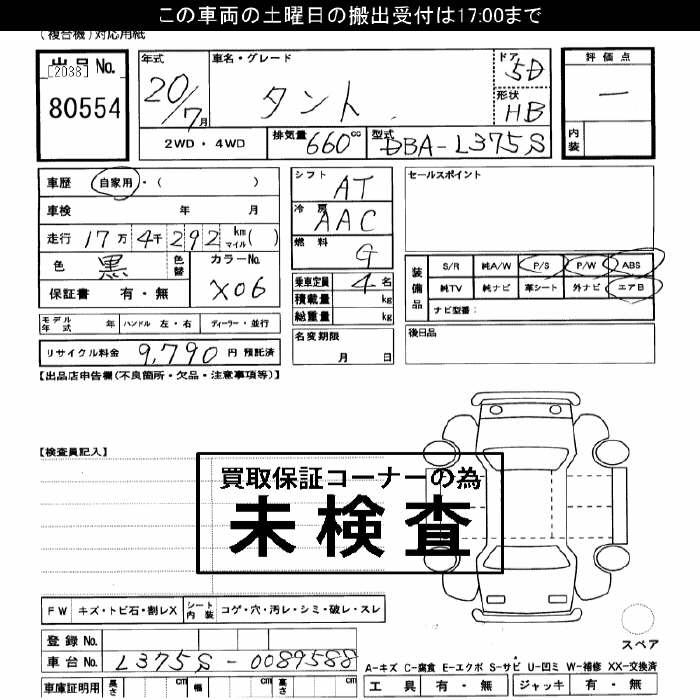 この車両の土曜日の搬出受付は17:00まで
(複合機)対応用紙
出品No. [2038] 80554
年式 20/7月
車名・グレード タント
ドア 5D
形状 HB
評価点 ー
内装
2WD・4WD 排気量 660cc 型式 DBA-L375S
車歴 自家用・( )
車検 年 月
走行 17万 4千 292 km マイル( )
色 黒 色替 カラーNo. X06
保証書 有・無
シフト AT
冷房 AAC
燃料 G
乗車定員 4名
積載量 kg
総重量 kg
セールスポイント
装備品 S/R 純A/W P/S P/W ABS
純TV 純ナビ 革シート 外ナビ エアB
ナビ型番:
モデル年式 年 ハンドル 左・右 ディーラー・並行
名変期限 月 日
後日品
リサイクル料金 9,790 円 預託済
【出品店申告欄(不良箇所・欠品・注意事項等)】
【検査員記入】
買取保証コーナーの為
未検査
FW キズ・トビ石・割レX シート内装 コゲ・穴・汚レ・シミ・破レ・スレ
スペア
登録No.
車台No. L375S-0089588
A-キズ C-腐食 E-エクボ S-サビ U-凹ミ W-補修 XX-交換済
車庫証明用 長さ cm 幅 cm 高さ cm
工具 有・無 ジャッキ 有・無